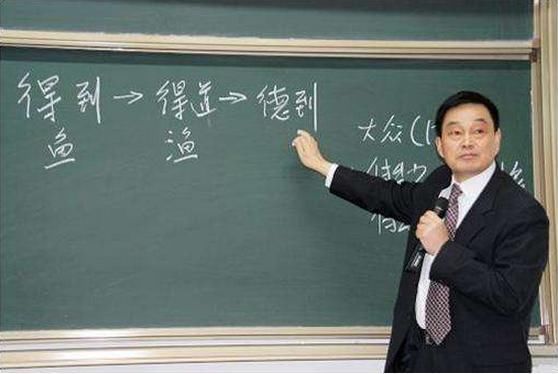 得到→得道→德到
鱼 渔
大众(